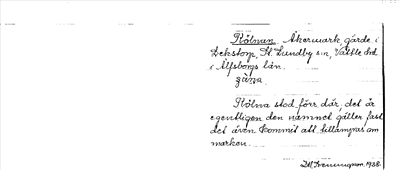 Rölnan. Åkermark, gärde i
Dekstorp, St. Lundby s:n, Vättle hd
i Älfsborgs län.
Rölna stod förr där, det är
egentligen den namnet gäller fast
det även kommit att tillämpas om
marken.
1928.